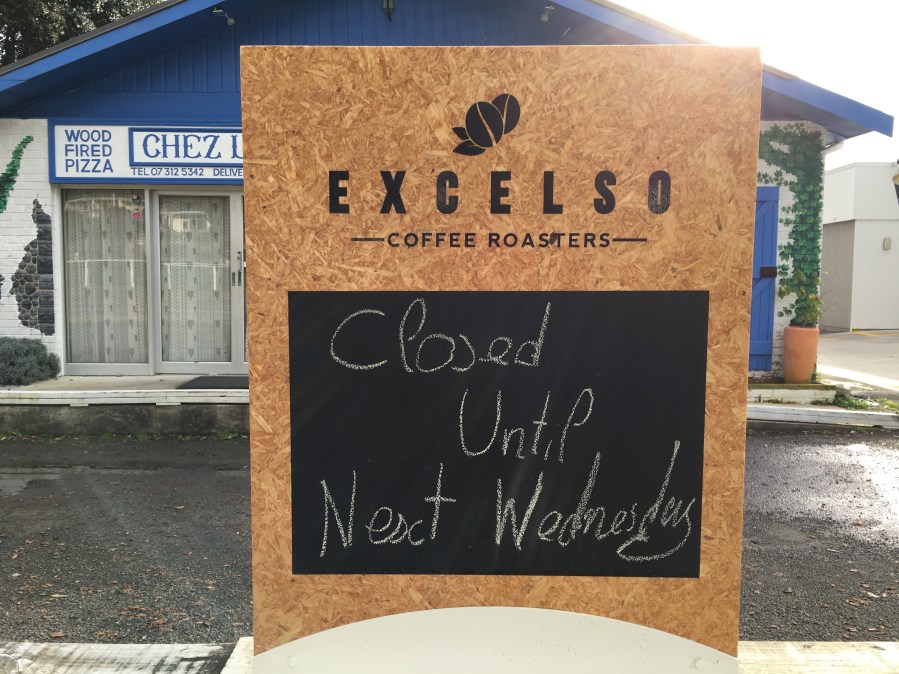 WOOD
FIRED
PIZZA
CHEZ
TEL 07 312 5342 DELIVE
EXCELSO
COFFEE ROASTERS
Closed
Until
Next Wednesday